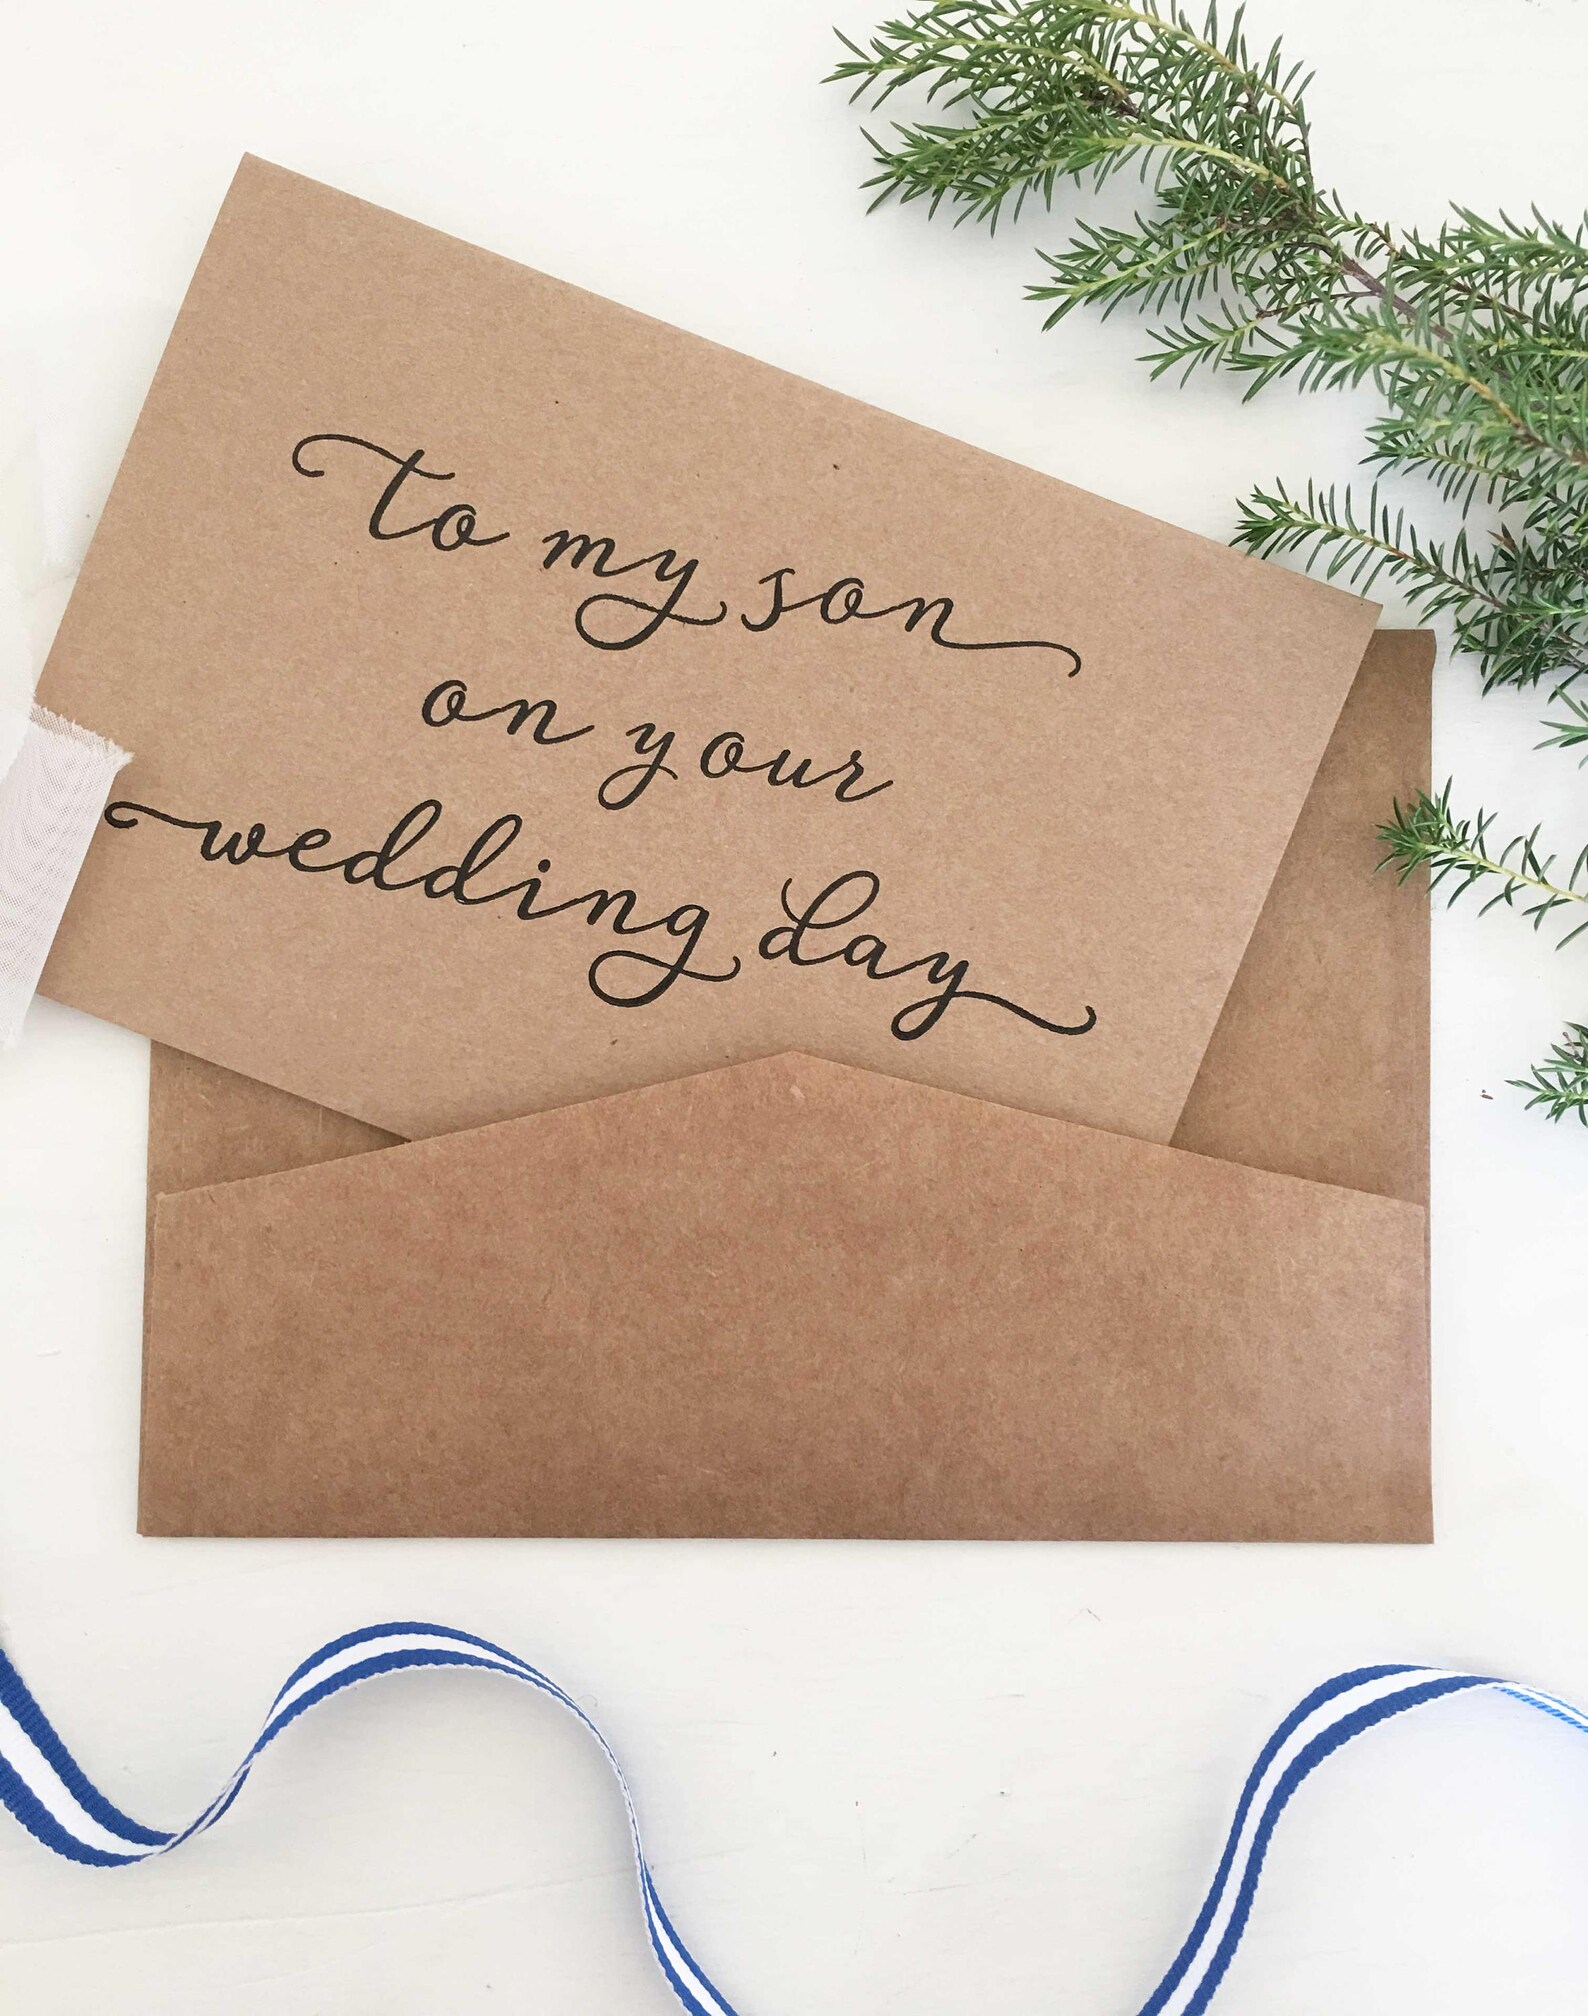 to my son
on your
wedding day